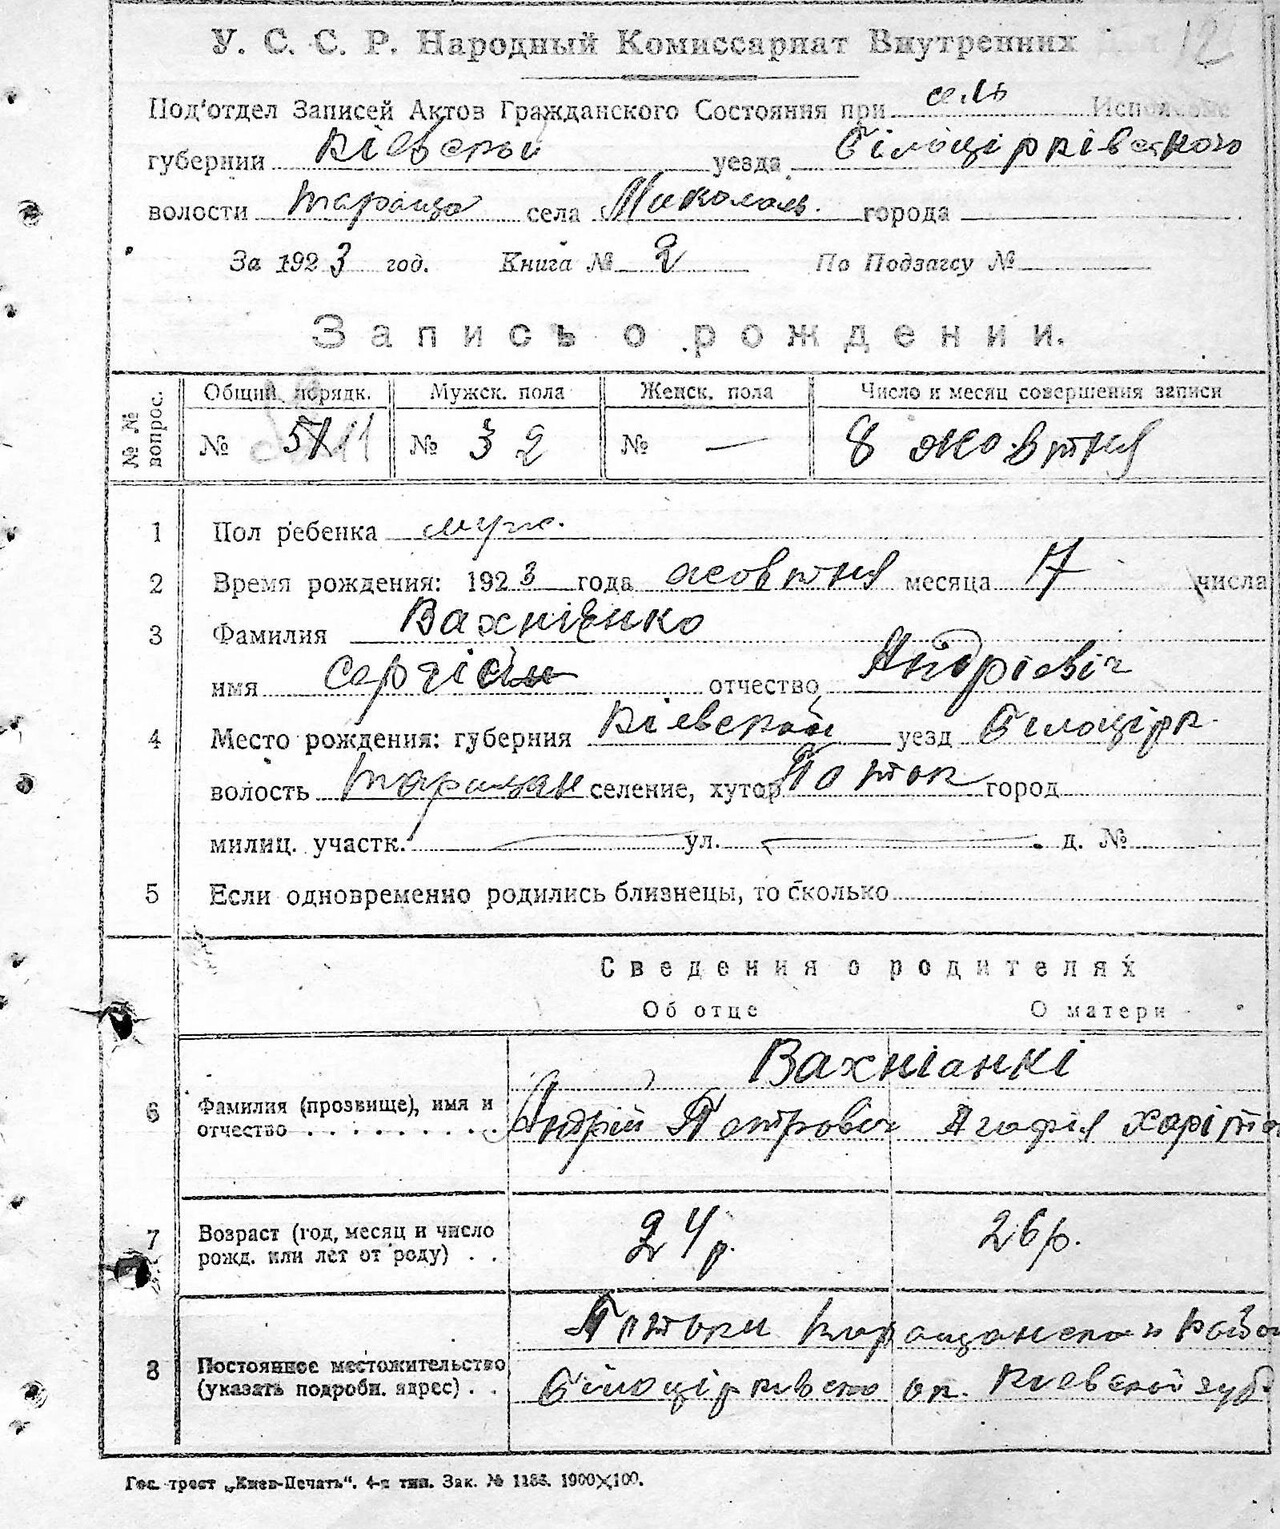 У. С. С. Р. Народный Комиссариат Внутренних Дел 12
Под'отдел Записей Актов Гражданского Состояния при сель Исполкоме
губернии Кіевської уезда Білоцірківського
волости Тараща села Миколаїв. города
За 1923 год. Книга № 2 По Подзагсу №
Запись о рождении.
№ № вопрос. Общий порядк. Мужск. пола Женск. пола Число и месяц совершения записи
№ № 32 № — 8 жовтня
1 Пол ребенка муж.
2 Время рождения: 1923 года жовтня месяца 17 числа
3 Фамилия Вахнienko
имя Сергій отчество Андрієвіч
4 Место рождения: губерния Кіевской уезд Білоцірк.
волость Таращан селение, хутор Поток город
милиц. участк. — ул. — д. №
5 Если одновременно родились близнецы, то сколько
Сведения о родителях
Об отце О матери
Вахніанкі
6 Фамилия (прозвище), имя и отчество Андрій Петровіч Агафія Харіто
7 Возраст (год, месяц и число рожд. или лет от роду) 24 р. 26 р.
Потоки Таращанского Райо
8 Постоянное местожительство (указать подробн. адрес) Білоцірківско ок. Кіевской губ.
Гос. трест „Киев-Печать". 4-я тип. Зак. № 1186. 1900×100.